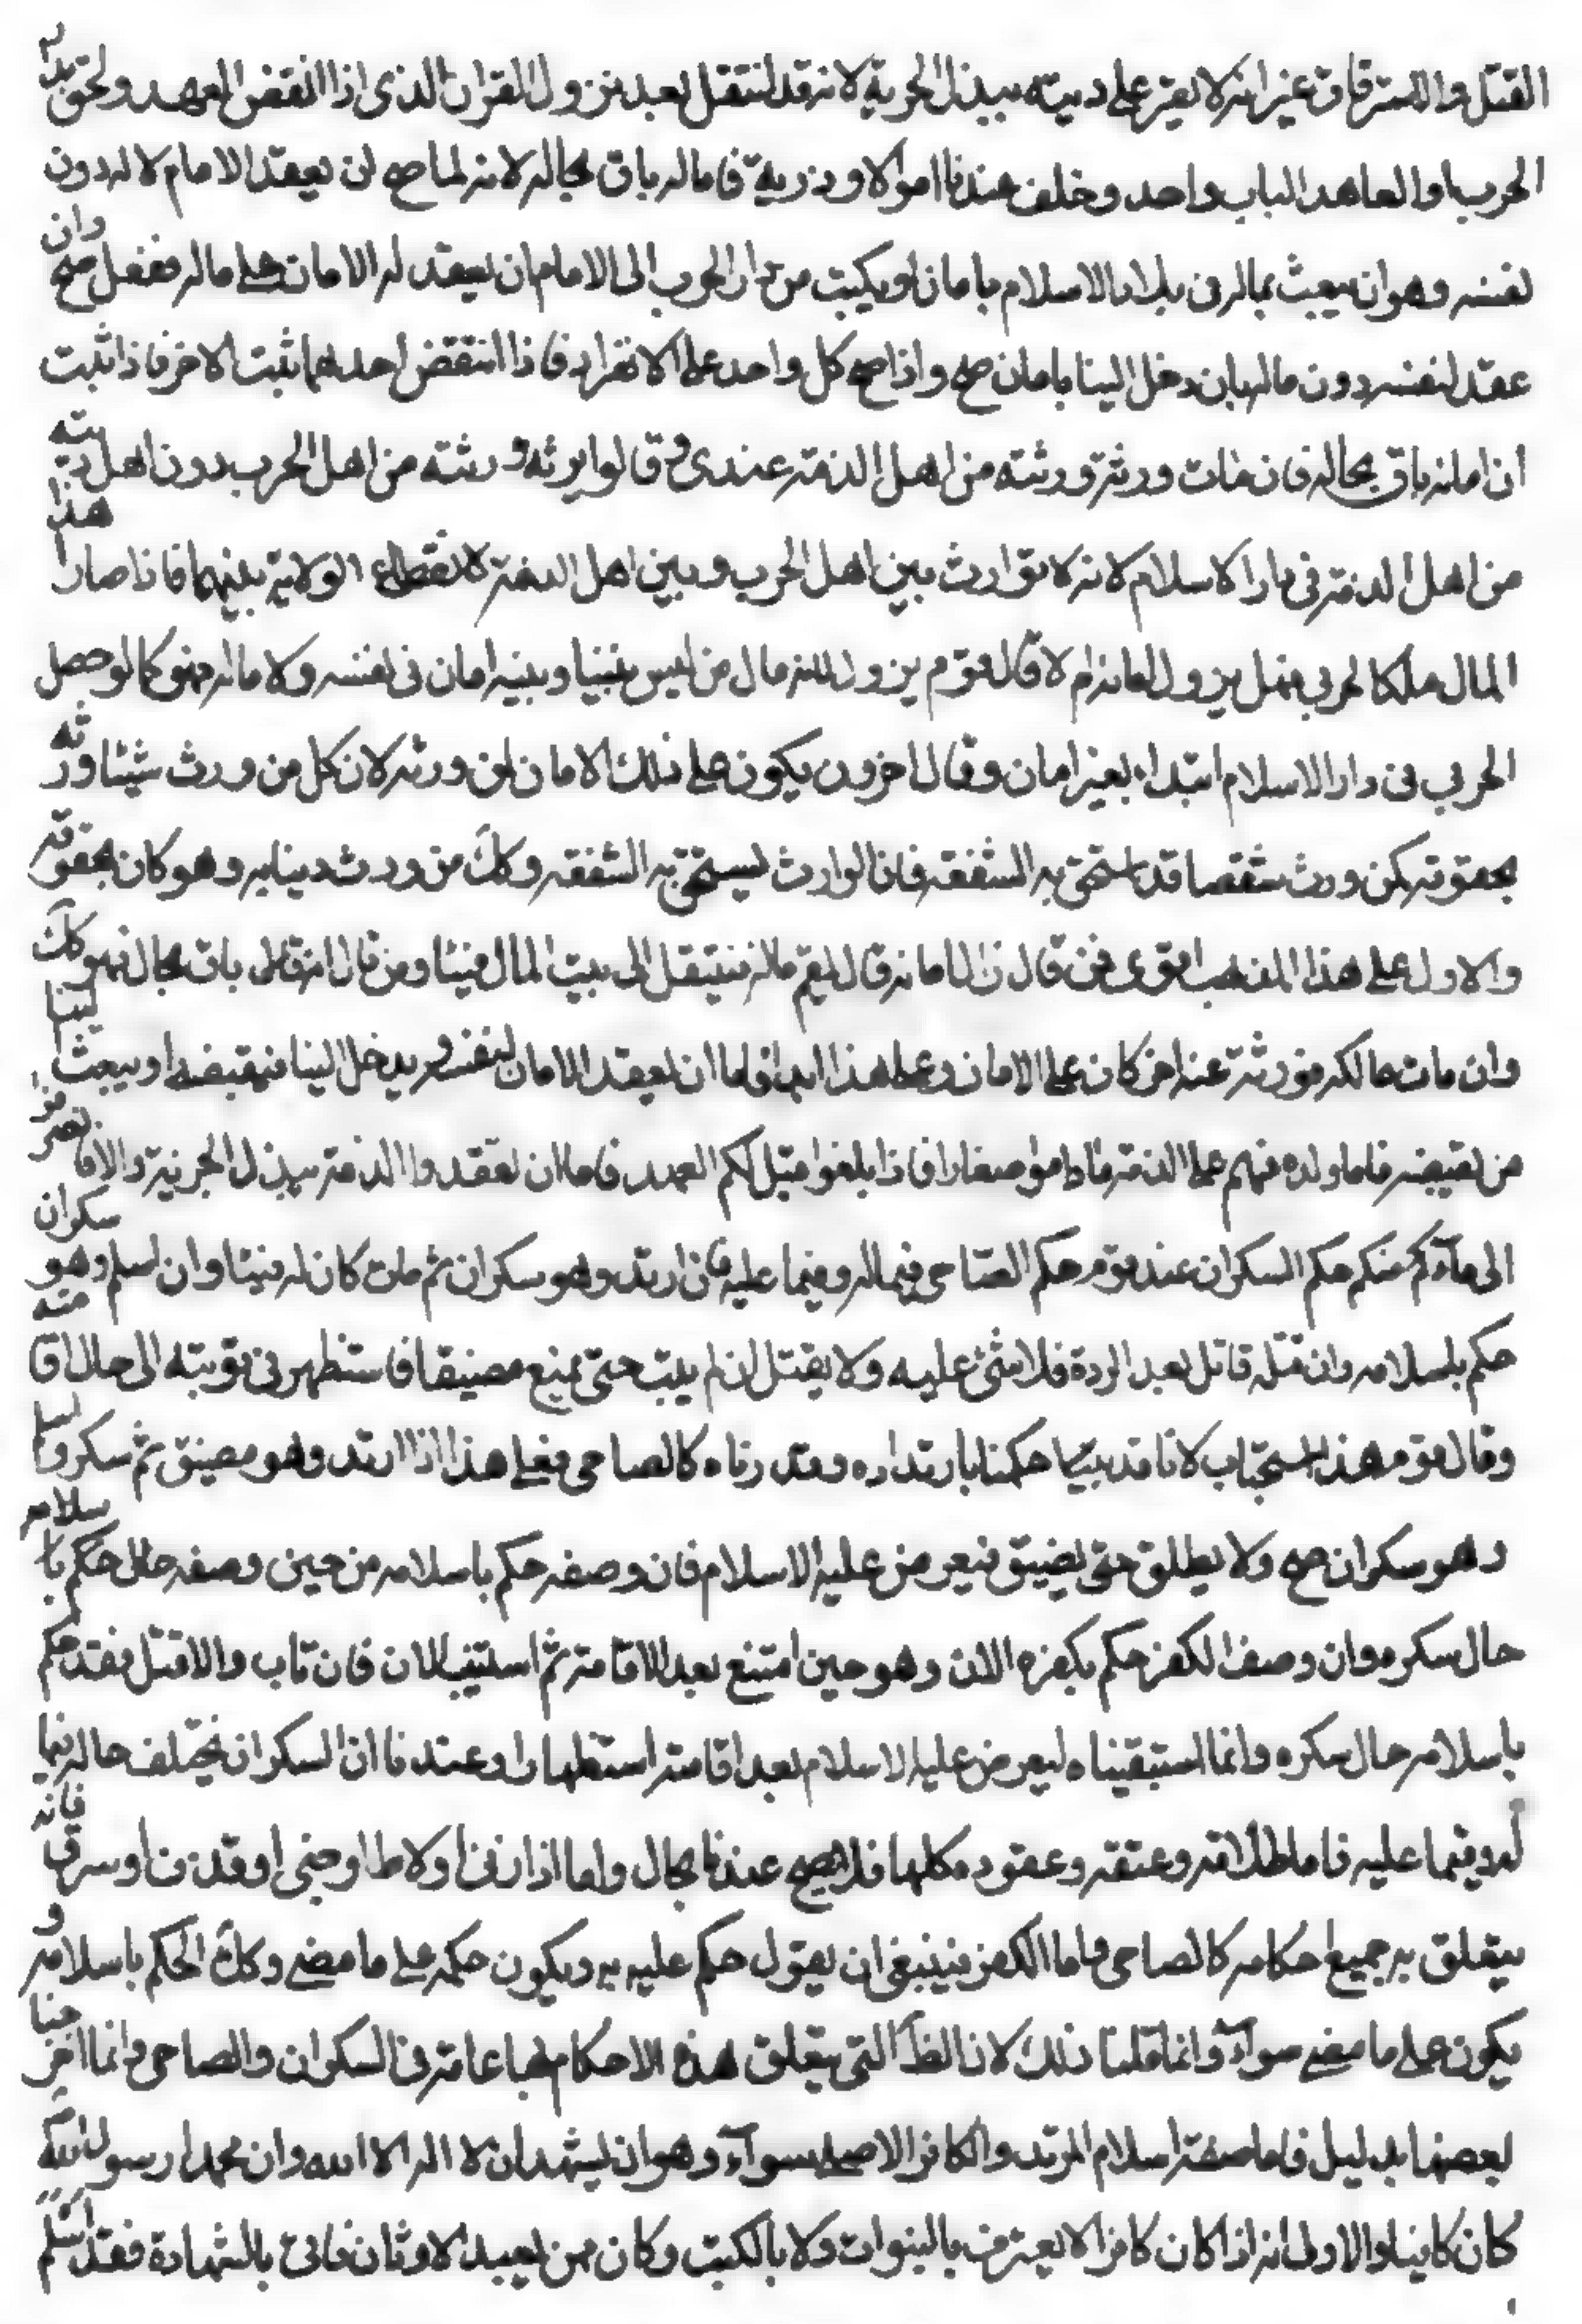 القتل والاسترقاق غير انه لا يقر على دينه ببذل الجزية لانه قد انتقل بعد نزول القران الذى اذا انقض العهد ولحق بدار
الحرب او المعاهد الباب واحد وخلف عندنا اموالا وذرية فاماله باق بحاله لانه لما صح ان يعقد الامام لا له دون
لنفسه وهو ان يبعث بماله فى بلاد الاسلام بامان او يكتب من دار الحرب الى الامام ان يعقد له الامان على ماله ففعل صح وان
عقد لنفسه دون ماله بان دخل الينا بامان صح واذا صح كل واحد على الانفراد فاذا انتقض احدهما ثبت الاخر فاذا ثبت
ان امانه باق بحاله فان مات ورثه ورثته من اهل الذمة عندى وقالوا يرثه ورثته من اهل الحرب دون اهل بيته
من اهل الذمة فى دار الاسلام لانه لا توارث بين اهل الحرب وبين اهل الذمة لانقطاع الولاية بينهما فاذا صار هذا
المال ملكا لحربى فهل يزول امانه ام لا قال قوم يزول لانه مال من ليس بيننا وبينه امان فى نفسه ولا ماله فهو كما لو حصل
الحربى فى دار الاسلام ابتداء بغير امان وقال اخرون يكون على ذلك الامان لمن ورثه لان كل من ورث شيئا ورثه
بحقوقه كمن ورث شقصا قد استحق به الشفعة فان الوارث يستحق به الشفعة وكك من ورث دينا به رهن كان بحقوقه
والاول على هذا المذهب اقوى فمن قال زال امانه قال يغنم ماله فينتقل الى بيت المال فيئا ومن قال امانه باق بحاله فهو كك
وان مات مالكه فورثه عنه اخر كان على الامان وعلى هذا ابدا فاما ان يعقد الامان لنفسه ويدخل الينا فيقبضه او يبعث الينا
من يقبضه فاما ولده فهم على الذمة ما داموا صغارا فاذا بلغوا قيل لكم العهد فاما ان تعقدوا الذمة ببذل الجزية والا فانصرفوا
الى مأمنكم حكم السكران عند قوم حكم الصاحى فيما له وفيما عليه فان ارتد وهو سكران ثم مات كان له فيئا وان اسلم وهو سكران
حكم باسلامه وان قتله قاتل بعد الردة فلا شئ عليه ولا يقتل ان لم يتب حتى يمتنع مفيقا فاستظهر فى توبته الى حال افاقته
وقال قوم هذا استحباب لانا قد بينا حكمنا بارتداده وقدرناه كالصاحى فعلى هذا اذا ارتد وهو مفيق ثم سكر واسلم
وهو سكران صح ولا يطلق حتى يفيق فيعرض عليه الاسلام فان وصفه حكم باسلامه من حين وصفه حال حكم باسلامه
حال سكره وان وصف الكفر حكم بكفره الان وهو حين امتنع بعد الافاقة ثم استتيب الان فان تاب والا قتل فقد حكم
باسلامه حال سكره وانما استبقيناه ليعرض عليه الاسلام بعد افاقته استظهارا وعندنا ان السكران يختلف حاله فيما
له وفيما عليه فاما طلاقه وعتقه وعقوده كلها فلا يصح عندنا بحال واما اذا زنى او لاط او جنى او قذف او سرق فانه
يتعلق به جميع احكامه كالصاحى واما الكفر فينبغى ان يقول حكم عليه به ويكون حكمه على ما مضى وكك الحكم باسلامه و
يكون على ما مضى سواء وانما قلنا ذلك لان الظ التى يتعلق هذه الاحكام بها عامة فى السكران والصاحى وانما اخرجنا
بعضها بدليل فاما صفة اسلام المرتد والكافر الاصلى سواء وهو ان يشهد ان لا اله الا الله وان محمدا رسول الله
كان كافيا والاولى انه اذا كان كافرا لا يعترف بالنبوات ولا بالكتب وكان ممن يعبد الاوثان فاتى بالشهادة فقد اسلم